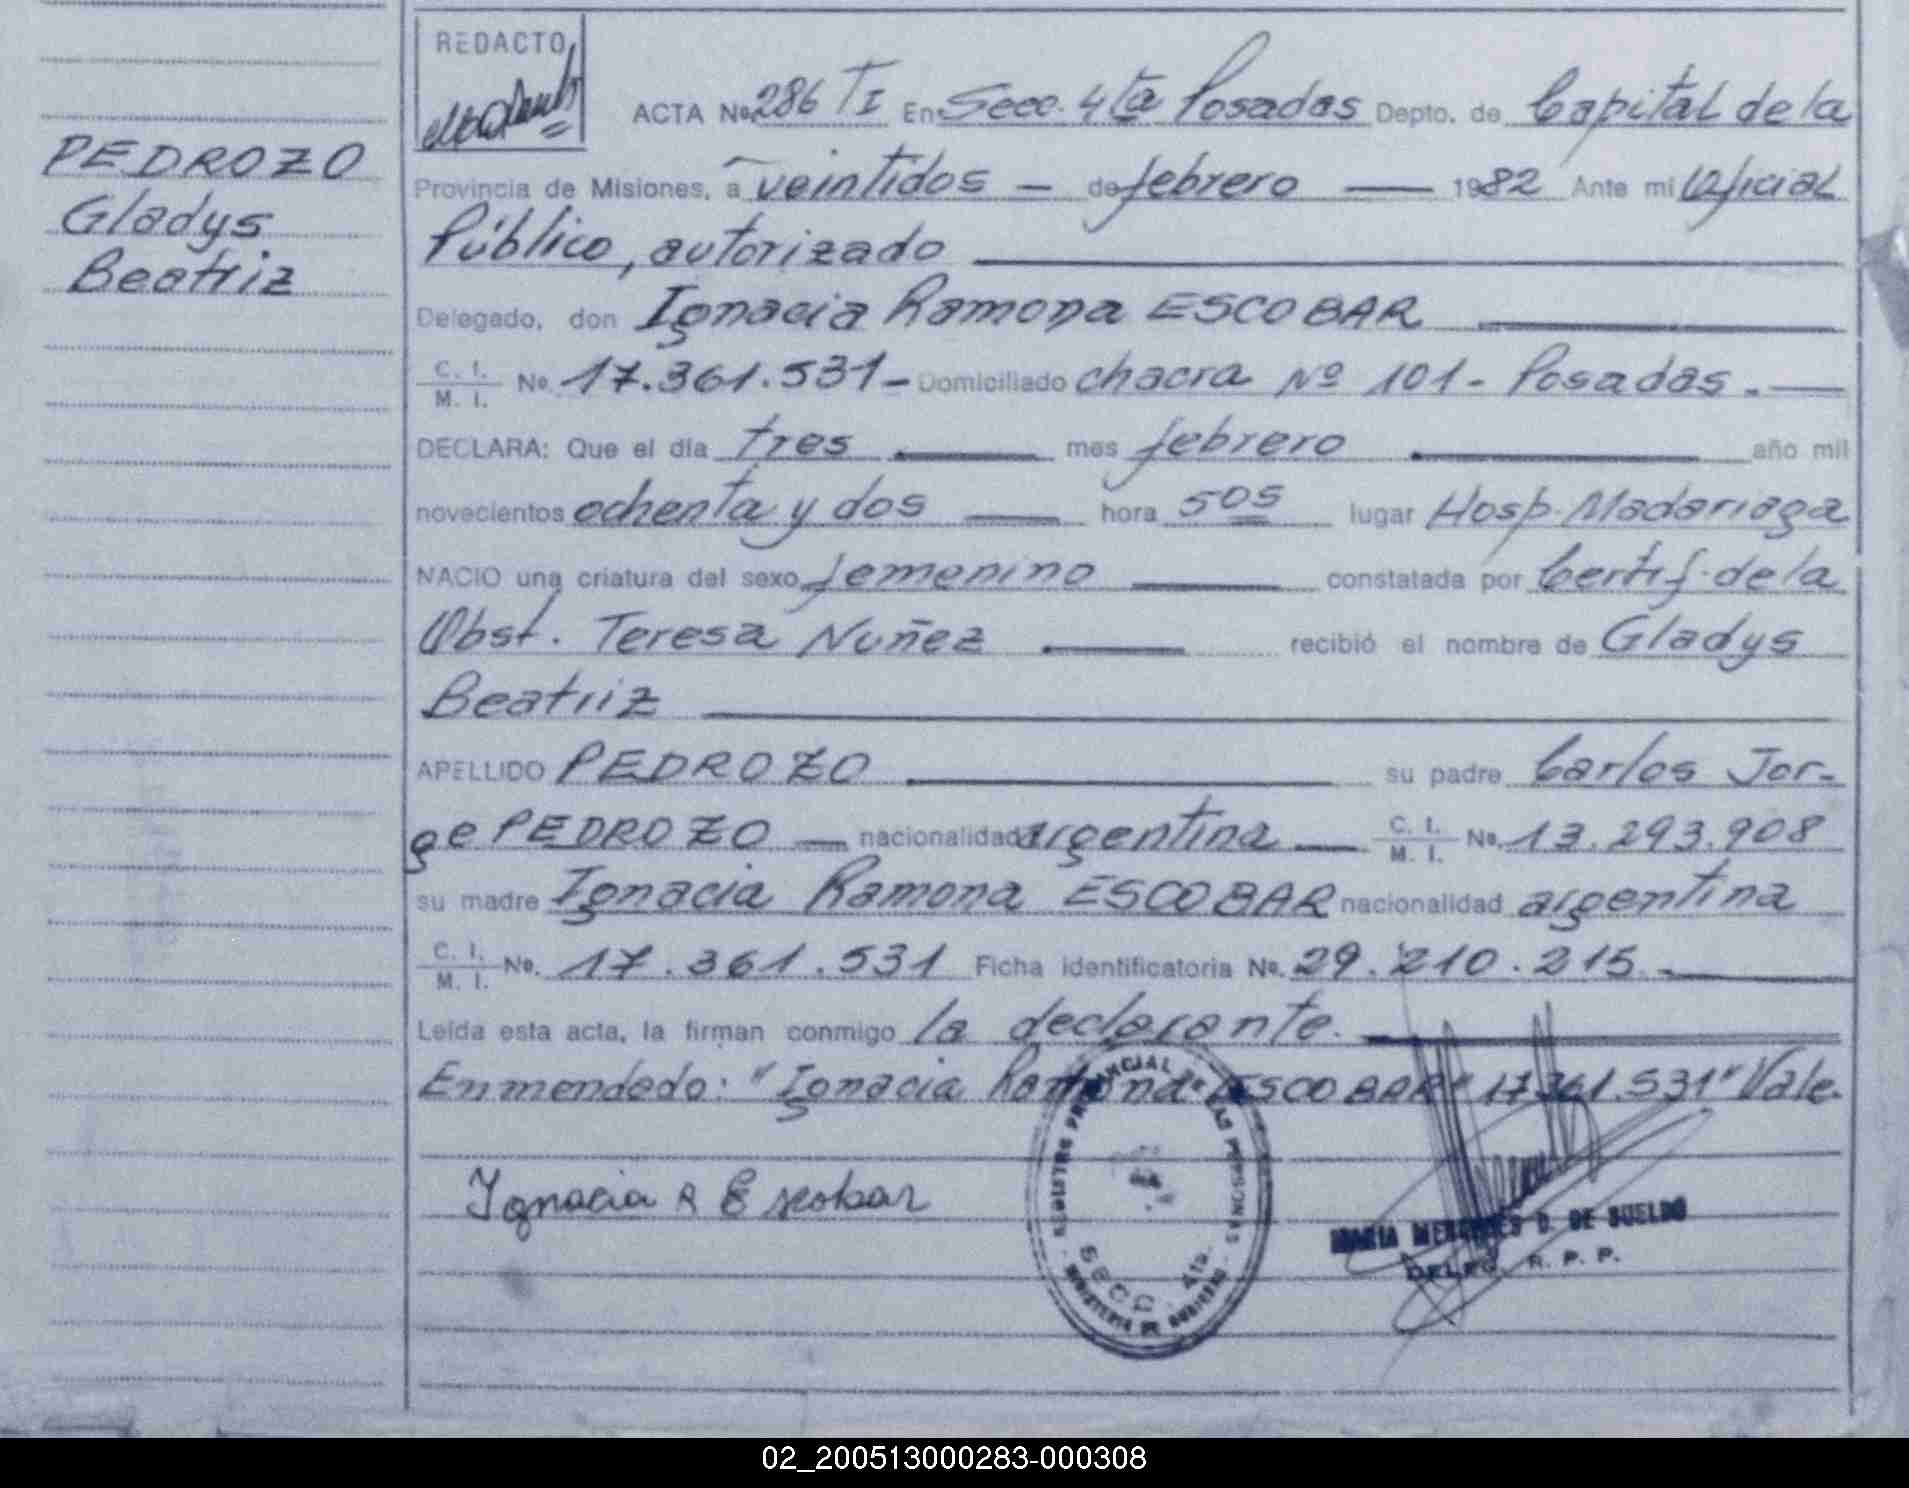 PEDROZO
Gladys
Beatriz
REDACTO
ACTA No. 286 TI En Secc. 4ta Posadas Depto. de Capital de la
Provincia de Misiones, a veintidos — de febrero — 1982 Ante mi Oficial
Público, autorizado
Delegado, don Ignacia Ramona ESCOBAR
C. I. M. I. No. 17.361.531- Domiciliado chacra Nº 101- Posadas.-
DECLARA: Que el día tres mes febrero año mil
novecientos ochenta y dos hora 5 05 lugar Hosp. Madariaga
NACIO una criatura del sexo femenino constatada por Certif. de la
Obst. Teresa Nuñez recibió el nombre de Gladys
Beatriz
APELLIDO PEDROZO su padre Carlos Jor-
ge PEDROZO — nacionalidad argentina — C. I. M. I. No. 13.293.908
su madre Ignacia Ramona ESCOBAR nacionalidad argentina
C. I. M. I. No. 17.361.531 Ficha identificatoria No. 29.210.215.-
Leída esta acta, la firman conmigo la declarante.
Enmendado: "Ignacia Ramona ESCOBAR" 17.361.531" Vale.
Ignacia R Escobar
REGISTRO PROVINCIAL DE LAS PERSONAS
SECC. 4ta.
MINISTERIO DE GOBIERNO
MARIA MERCEDES D. DE SUELDO
DELEG. R. P. P.
02_200513000283-000308